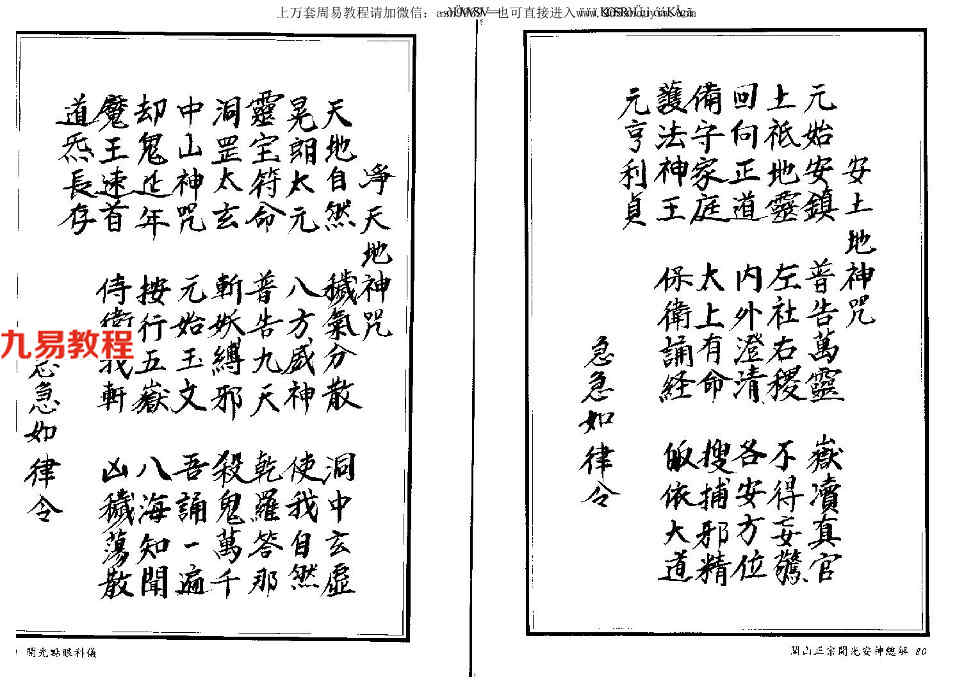 上万套周易教程请加微信：
也可直接进入
安土地神咒
元始安鎮 普告萬靈 嶽瀆真官
土祇地靈 左社右稷 不得妄驚
回向正道 內外澄清 各安方位
備守家庭 太上有命 搜捕邪精
護法神王 保衛誦経 皈依大道
元亨利貞
急急如律令
閭山正宗開光安神總解 80
淨天地神咒
天地自然 穢氣分散 洞中玄虛
晃朗太元 八方威神 使我自然
靈宝符命 普告九天 乾羅答那
洞罡太玄 斬妖縛邪 殺鬼萬千
中山神咒 元始玉文 吾誦一遍
却鬼延年 按行五嶽 八海知聞
魔王速首 侍衛我軒 凶穢蕩散
道炁長存
急急如律令
開光點眼科儀
九易教程